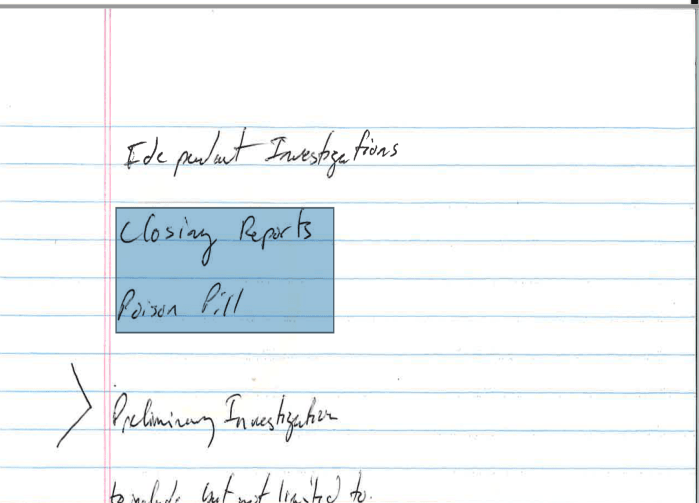 Idependant Investigations
Closing Reports
Poison Pill
> Preliminary Investigation
to include but not limited to.